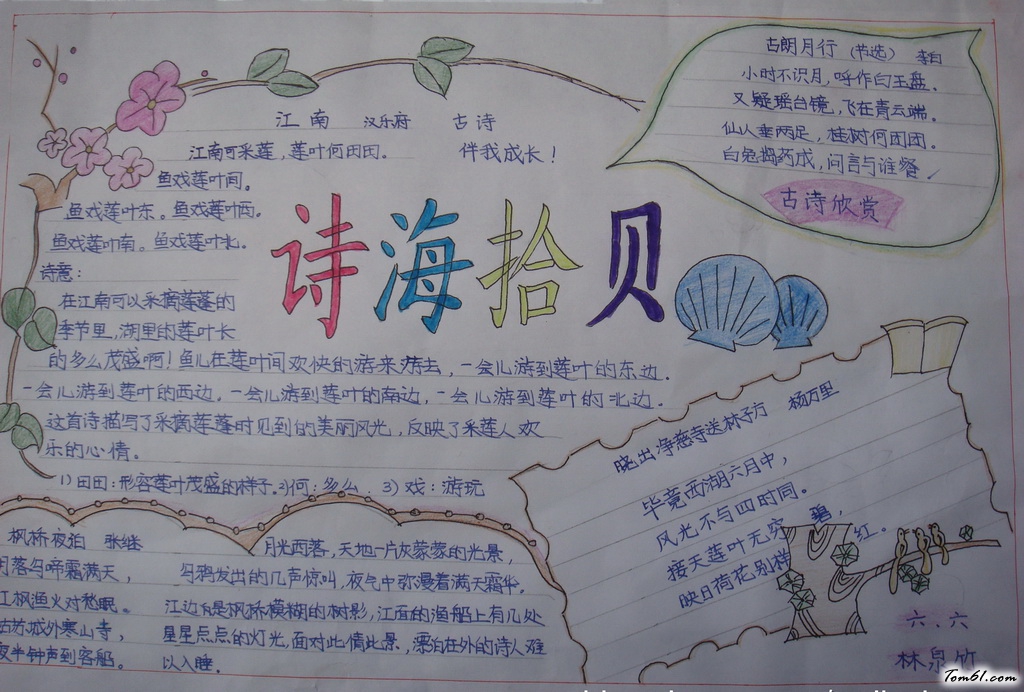 古朗月行 (节选) 李白
小时不识月,呼作白玉盘.
又疑瑶台镜,飞在青云端.
仙人垂两足,桂树何团团.
白兔捣药成,问言与谁餐.
古诗欣赏
江南 汉乐府 古诗
伴我成长!
江南可采莲,莲叶何田田.
鱼戏莲叶间。
鱼戏莲叶东。鱼戏莲叶西。
鱼戏莲叶南。鱼戏莲叶北.
诗海拾贝
诗意:
在江南可以采摘莲蓬的
季节里,湖里的莲叶长
的多么茂盛啊!鱼儿在莲叶间欢快的游来游去,一会儿游到莲叶的东边.
一会儿游到莲叶的西边,一会儿游到莲叶的南边,一会儿游到莲叶的北边.
这首诗描写了采摘莲蓬时见到的美丽风光,反映了采莲人欢
乐的心情。
1)田田:形容莲叶茂盛的样子.2)何:多么 3)戏:游玩
晓出净慈寺送林子方 杨万里
毕竟西湖六月中,
风光不与四时同。
接天莲叶无穷碧,
映日荷花别样红。
枫桥夜泊 张继
月落乌啼霜满天,
江枫渔火对愁眠。
姑苏城外寒山寺,
夜半钟声到客船。
月光西落,天地一片灰蒙蒙的光景,
乌鸦发出的几声惊叫,夜气中弥漫着满天霜华.
江边几是枫桥模糊的树影,江面的渔船上有几处
星星点点的灯光,面对此情此景,漂泊在外的诗人难
以入睡.
六.六
林泉竹
Tom61.com